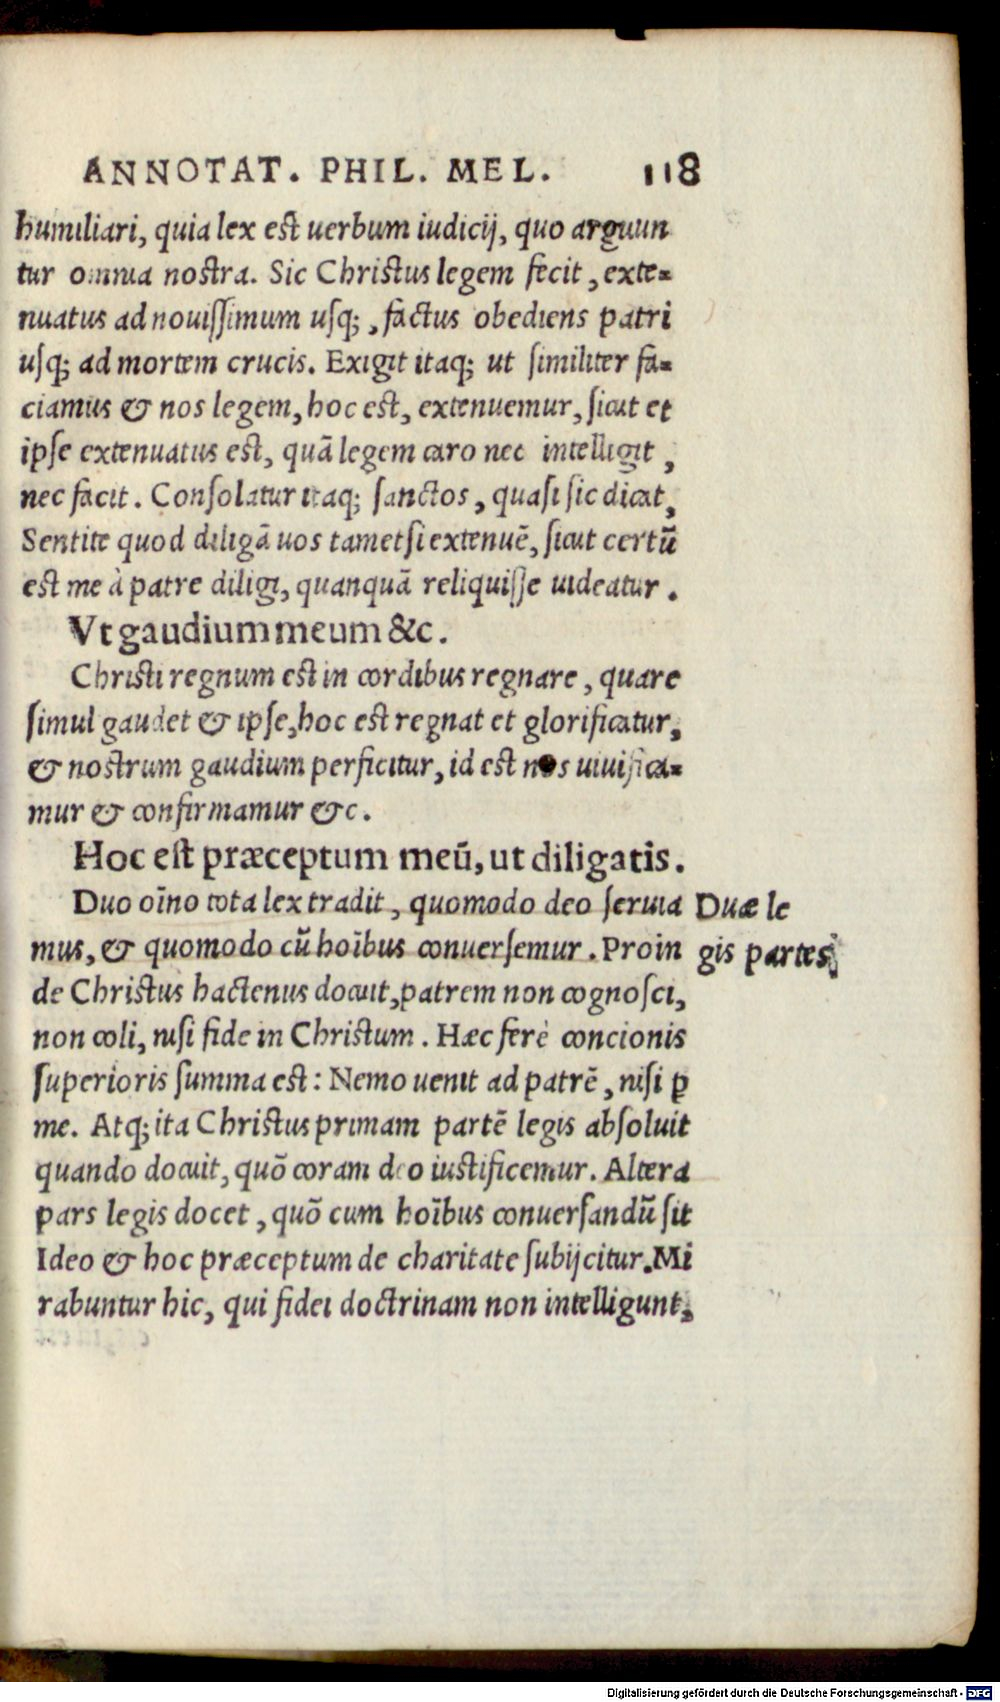 ANNOTAT. PHIL. MEL. 118
humiliari, quia lex est uerbum iudicij, quo arguun
tur omnia nostra. Sic Christus legem fecit, exte=
nuatus ad nouissimum usq;, factus obediens patri
usq; ad mortem crucis. Exigit itaq; ut similiter fa=
ciamus & nos legem, hoc est, extenuemur, sicut et
ipse extenuatus est, quā legem caro nec intelligit,
nec facit. Consolatur itaq; sanctos, quasi sic dicat,
Sentite quod diligā uos tametsi extenuē, sicut certū
est me à patre diligi, quanquā reliquisse uideatur.
Vt gaudium meum &c.
Christi regnum est in cordibus regnare, quare
simul gaudet & ipse, hoc est regnat et glorificatur,
& nostrum gaudium perficitur, id est nos uiuifica=
mur & confirmamur &c.
Hoc est præceptum meū, ut diligatis.
Duo oīno tota lex tradit, quomodo deo seruia
mus, & quomodo cū hoībus conuersemur. Proin
de Christus hactenus docuit, patrem non cognosci,
non coli, nisi fide in Christum. Hæc ferè concionis
superioris summa est: Nemo uenit ad patrē, nisi ꝑ
me. Atq; ita Christus primam partē legis absoluit
quando docuit, quō coram deo iustificemur. Altera
pars legis docet, quō cum hoībus conuersandū sit
Ideo & hoc præceptum de charitate subijcitur. Mi
rabuntur hic, qui fidei doctrinam non intelligunt,
Duæ le
gis partes
Digitalisierung gefördert durch die Deutsche Forschungsgemeinschaft - DFG